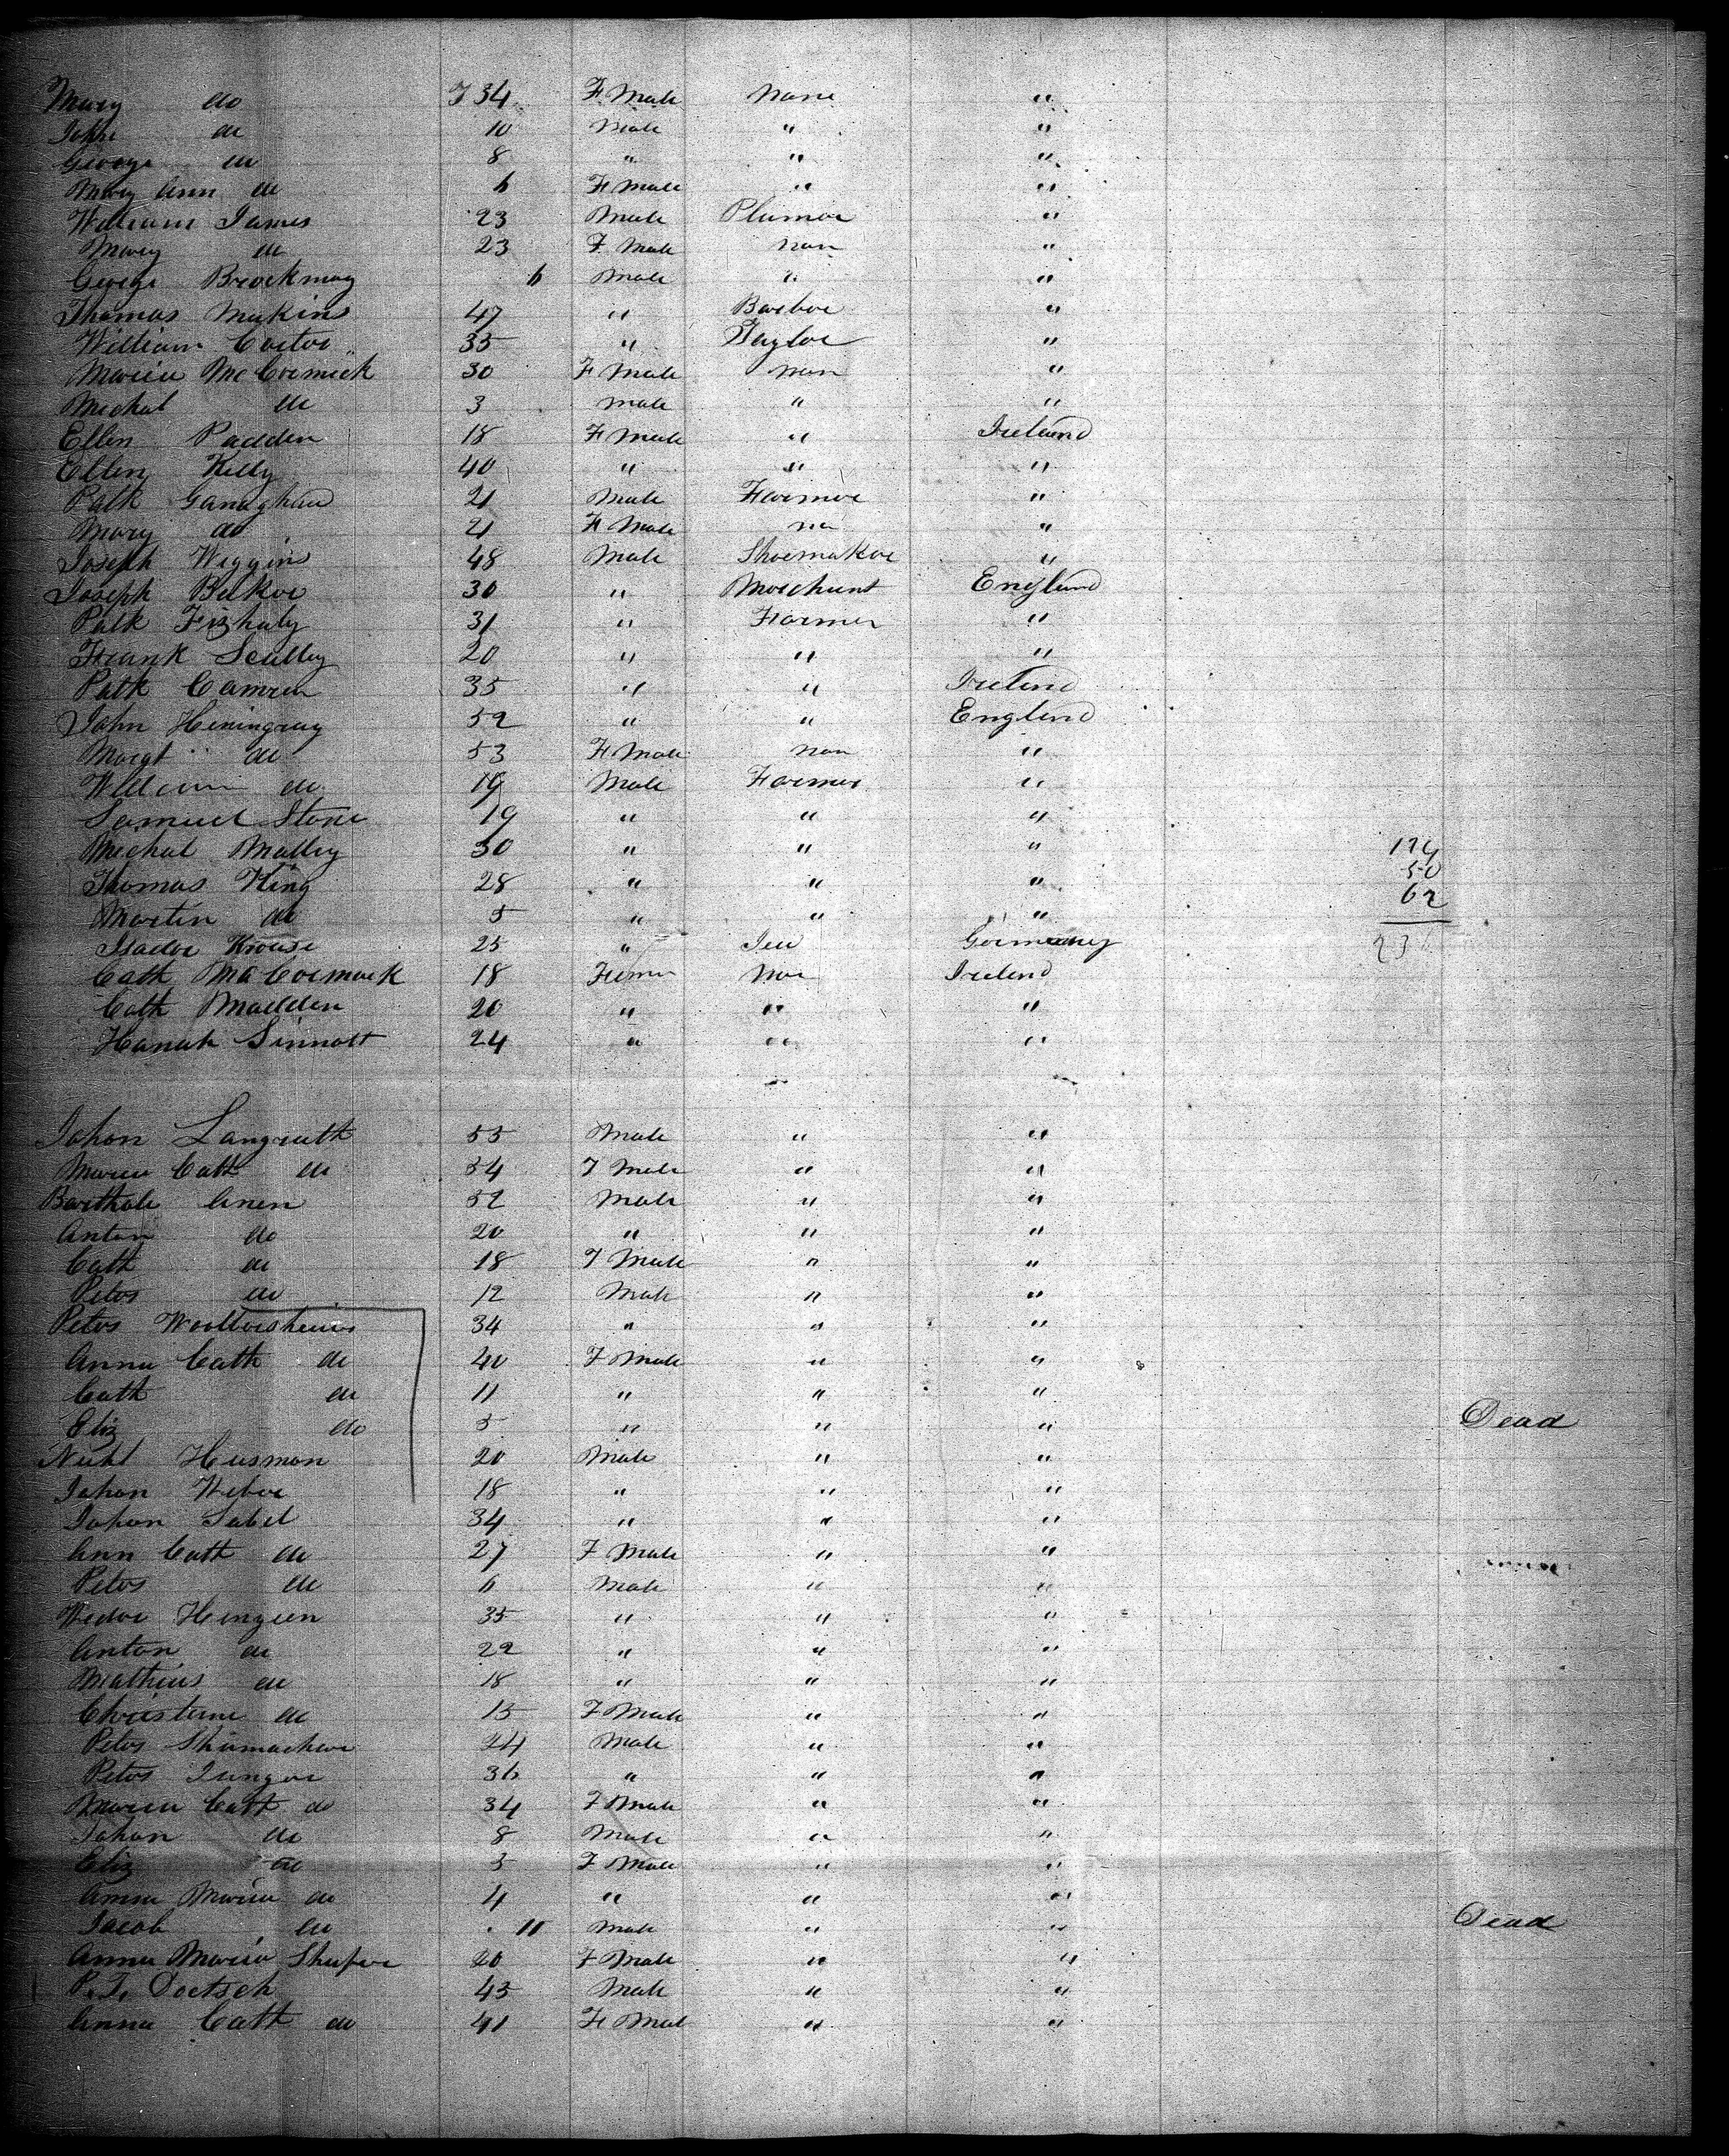 Mary do 34 F Male None "
John do 10 Male " "
George do 8 " " "
Mary Ann do 6 F Male " "
William James 23 Male Plumer "
Mary do 23 F Male non "
George Brockmay 6 Male " "
Thomas Makin 47 " Barber "
William Carter 35 " Taylor "
Maria McCormick 30 F Male non "
Michal do 3 male " "
Ellen Padden 18 F Male " Ireland
Ellen Kelly 40 " " "
Patk Ganaghan 21 Male Farmer "
Mary do 21 F Male no "
Joseph Wiggins 48 Male Shoemaker "
Joseph Baker 30 " Merchant England
Patk Fizhaly 31 " Farmer "
Frank Scully 20 " " "
Patk Camren 35 " " Irelind
John Heningray 52 " " England
Margt do 53 F Male non "
William do 19 Male Farmer "
Samuel Stone 19 " " "
Michal Malley 30 " " "
124
Thomas King 28 " " "
50
62
Martin do 5 " " "
Isador Krouse 25 " Jew Germany
23
Cath MaCormack 18 Non Irelend
Cath Madden 20 " " "
Hanah Sinnott 24 " " "
Johan Langruth 55 Male " "
Maria Cath do 54 F Male " "
Barthole Anen 52 Male " "
Anton do 20 " " "
Cath do 18 F Male " "
Peter do 12 Male " "
Peter 34 " " "
Anna Cath do 40 F Male " "
Cath do 11 " " "
Eliz do 5 " " " Dead
Husman 20 Male " "
Johan Weber 18 " " "
Johan Sabel 34 " " "
Ann Cath do 27 F Male " "
Peter do 6 Male " "
Henzeen 35 " " "
Anton do 22 " " "
Mathias do 18 " " "
Christane do 15 F Male " "
Peter Shumacher 24 Male " "
Peter Junger 36 " " "
Maria Cath do 34 F Male " "
Johan do 8 Male " "
Eliz do 5 F Male " "
Anna Maria do 4 " " "
Jacob do 11 Male " " Dead
Anna Maria Shafer 20 F Male " "
P. J. Doetsch 43 Male " "
Anna Cath do 41 F Mal " "